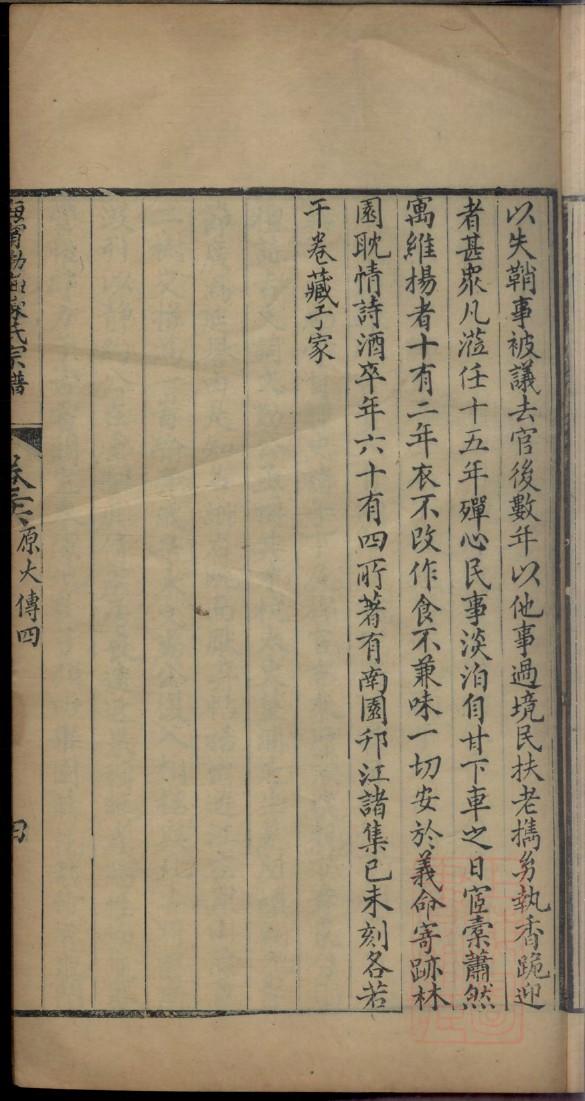 以失鞘事被議去官後數年以他事過境民扶老擕㓜執香跪迎
者甚衆凡涖任十五年殫心民事淡泊自甘下車之日宦槖蕭然
寓維揚者十有二年衣不改作食不兼味一切安於義命寄跡林
園耽情詩酒卒年六十有四所著有南園邗江諸集已未刻各若
干卷藏于家
海寧渤海陳氏宗譜
原大傳四
四